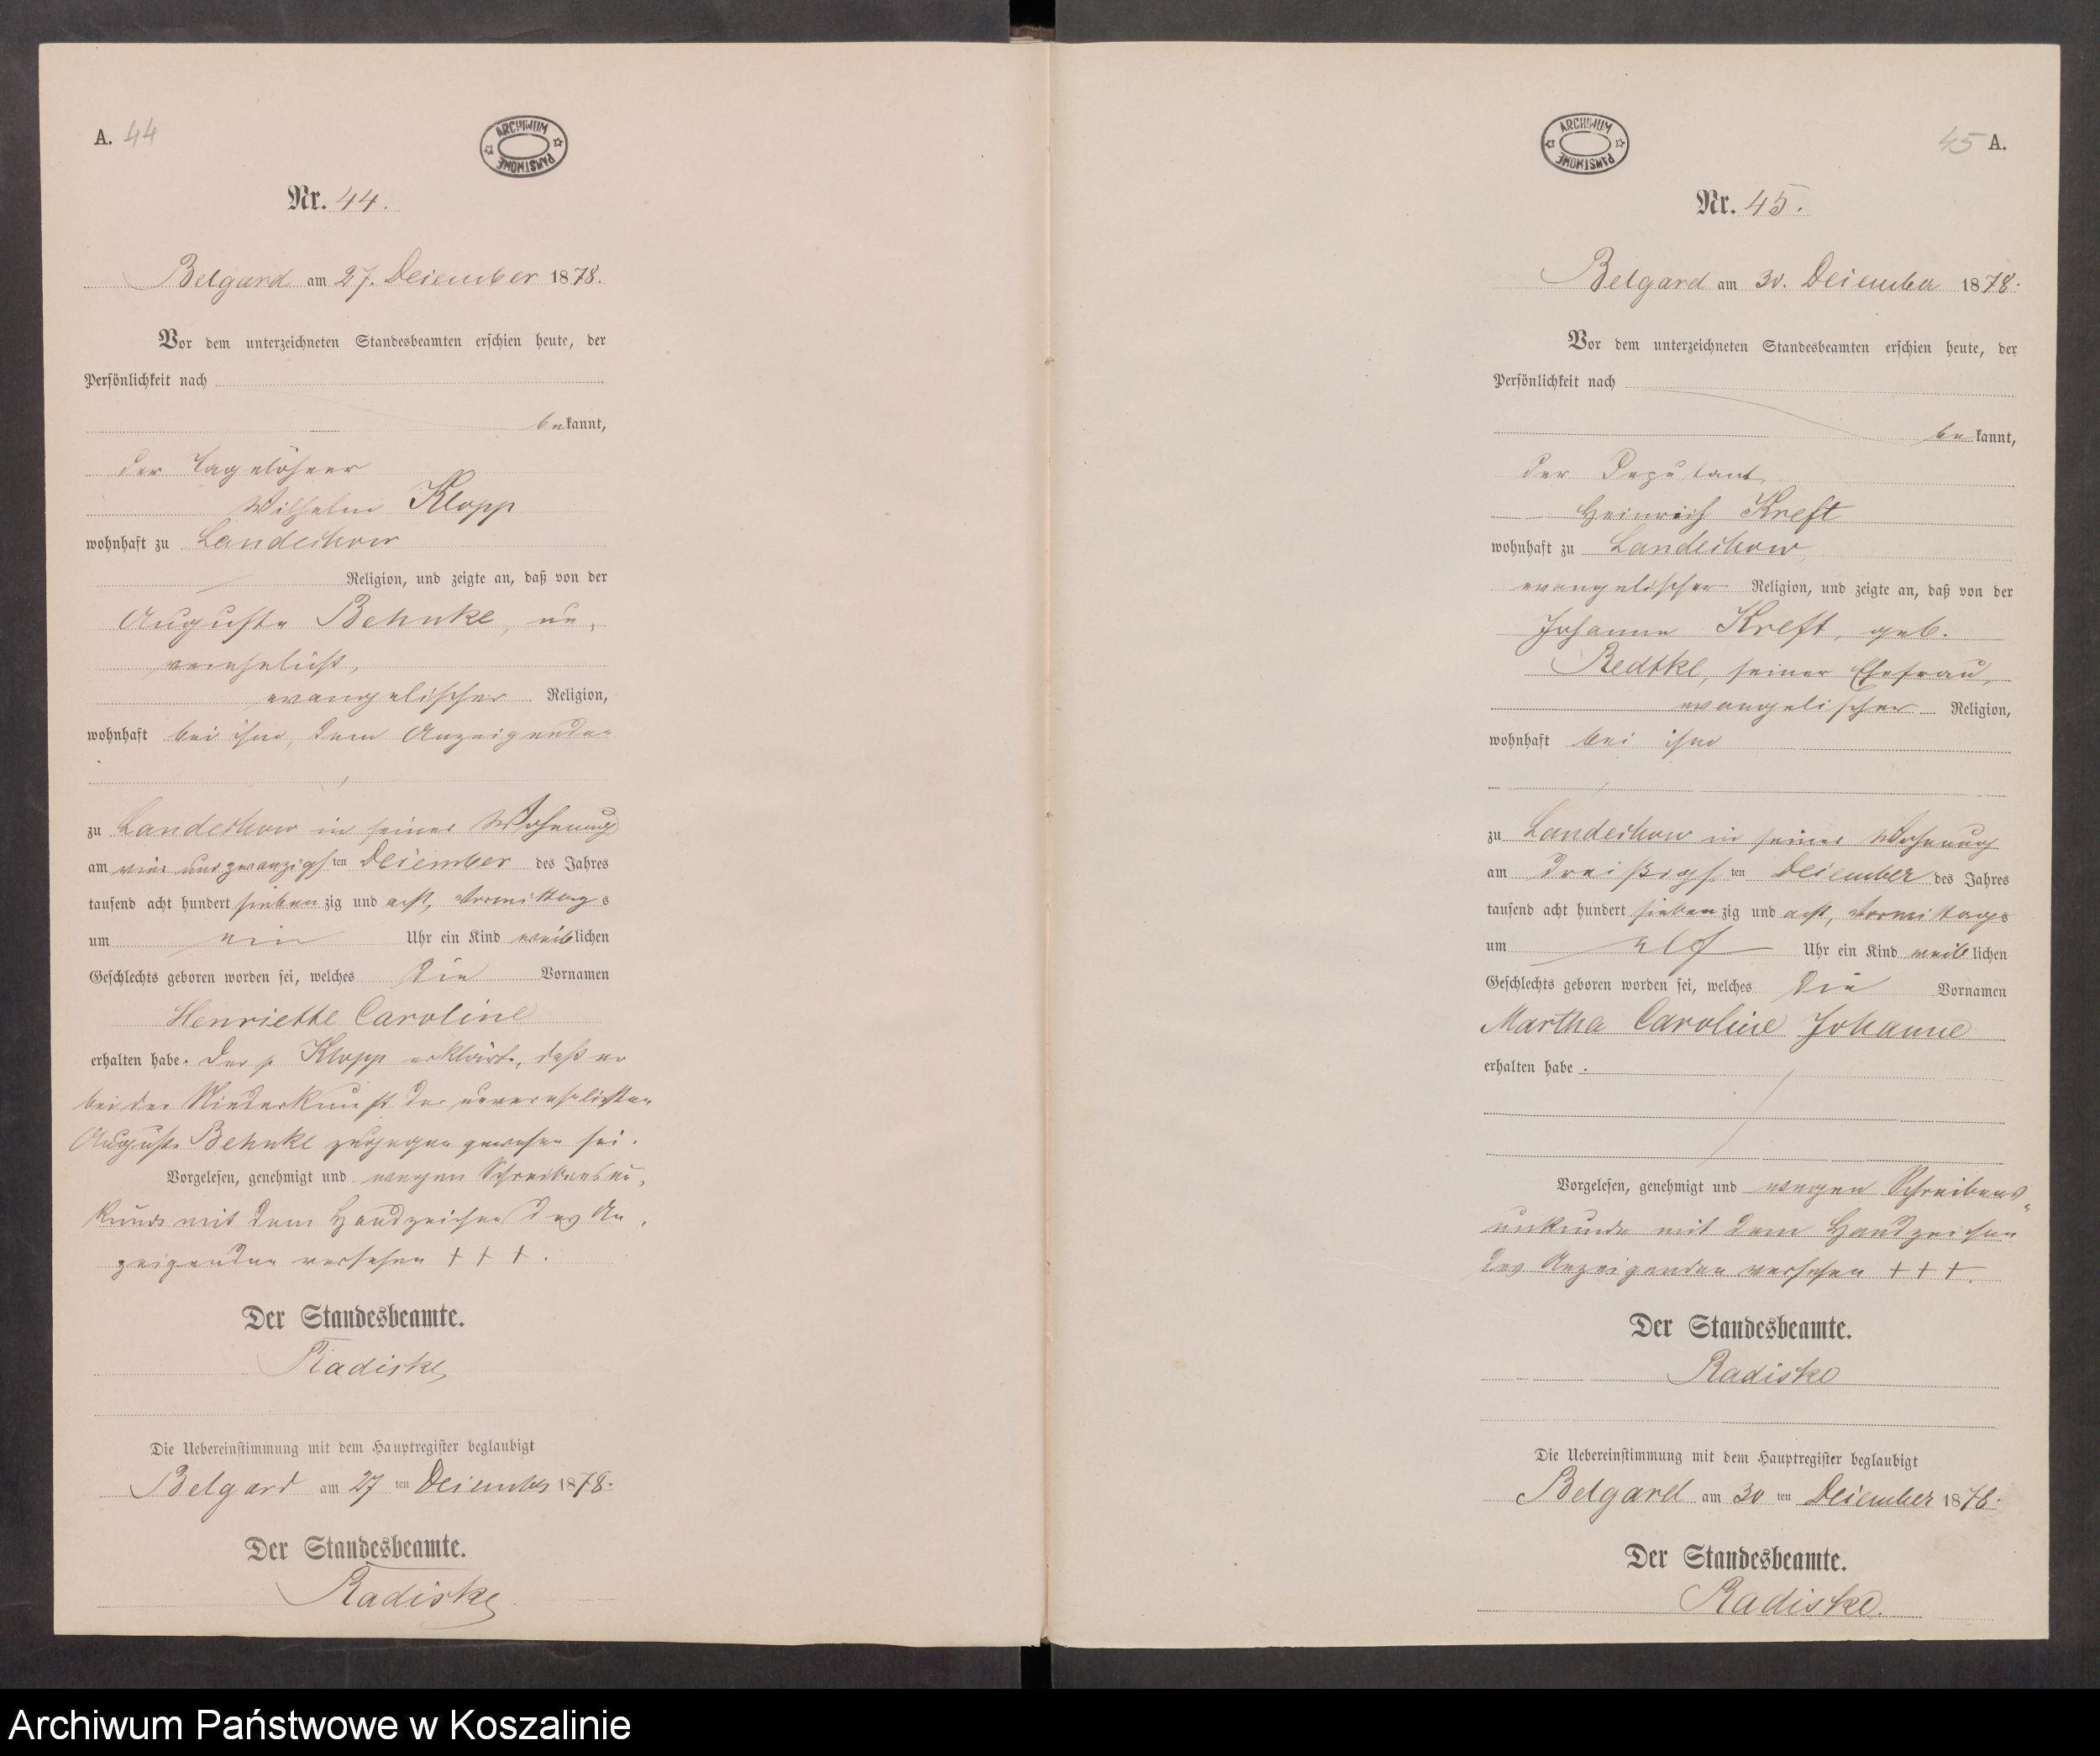 A. 44
ARCHIWUM PAŃSTWOWE
Nr. 44.
Belgard am 27. December 1878.
Vor dem unterzeichneten Standesbeamten erschien heute, der
Persönlichkeit nach
bekannt,
der Tagelöhner
Wilhelm Klopp
wohnhaft zu Landechow
Religion, und zeigte an, daß von der
Auguste Behnke, un-
verehelicht,
evangelischer Religion,
wohnhaft bei ihm, dem Anzeigenden
zu Landechow in seiner Wohnung
am vier und zwanzigsten December des Jahres
tausend acht hundert siebenzig und acht, Vormittags
um ein Uhr ein Kind weiblichen
Geschlechts geboren worden sei, welches die Vornamen
Henriette Caroline
erhalten habe. Der p Klopp erklärte, daß er
bei der Niederkunft der unverehelichten
Auguste Behnke zugegen gewesen sei.
Vorgelesen, genehmigt und wegen Schreibensun-
kunde mit dem Handzeichen des An-
zeigenden versehen + + + .
Der Standesbeamte.
Radiske
Die Uebereinstimmung mit dem Hauptregister beglaubigt
Belgard am 27 ten December 1878.
Der Standesbeamte.
Radiske
45 A.
ARCHIWUM PAŃSTWOWE
Nr. 45.
Belgard am 30. December 1878.
Vor dem unterzeichneten Standesbeamten erschien heute, der
Persönlichkeit nach
bekannt,
der Deputant
Heinrich Kreft
wohnhaft zu Landechow,
evangelischer Religion, und zeigte an, daß von der
Johanne Kreft, geb.
Redtke, seiner Ehefrau,
evangelischer Religion,
wohnhaft bei ihm
zu Landechow in seiner Wohnung
am dreißigsten December des Jahres
tausend acht hundert siebenzig und acht, Vormittags
um elf Uhr ein Kind weiblichen
Geschlechts geboren worden sei, welches die Vornamen
Martha Caroline Johanne
erhalten habe .
Vorgelesen, genehmigt und wegen Schreibens-
unkunde mit dem Handzeichen
des Anzeigenden versehen + + +.
Der Standesbeamte.
Radiske
Die Uebereinstimmung mit dem Hauptregister beglaubigt
Belgard am 30 ten December 1878.
Der Standesbeamte.
Radiske.
Archiwum Państwowe w Koszalinie